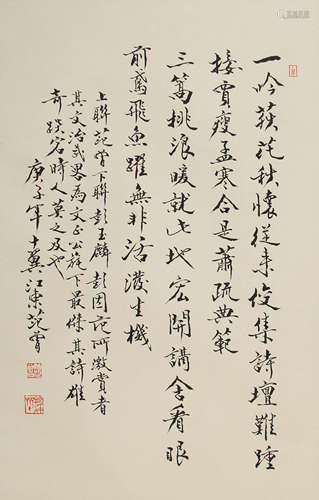 一吟荻花秋懷從来俊集詩壇難踵
接賈瘦孟寒合是蕭疏典範
三篙桃浪暖就此地宏開講舍看眼
前鳶飛魚躍無非活潑生機
上聯范曾下聯彭玉麟彭因范所激賞者
其文治武略為文正公麾下最傑其詩雄
奇跌宕時人莫之及也
庚子年十翼江東范曾